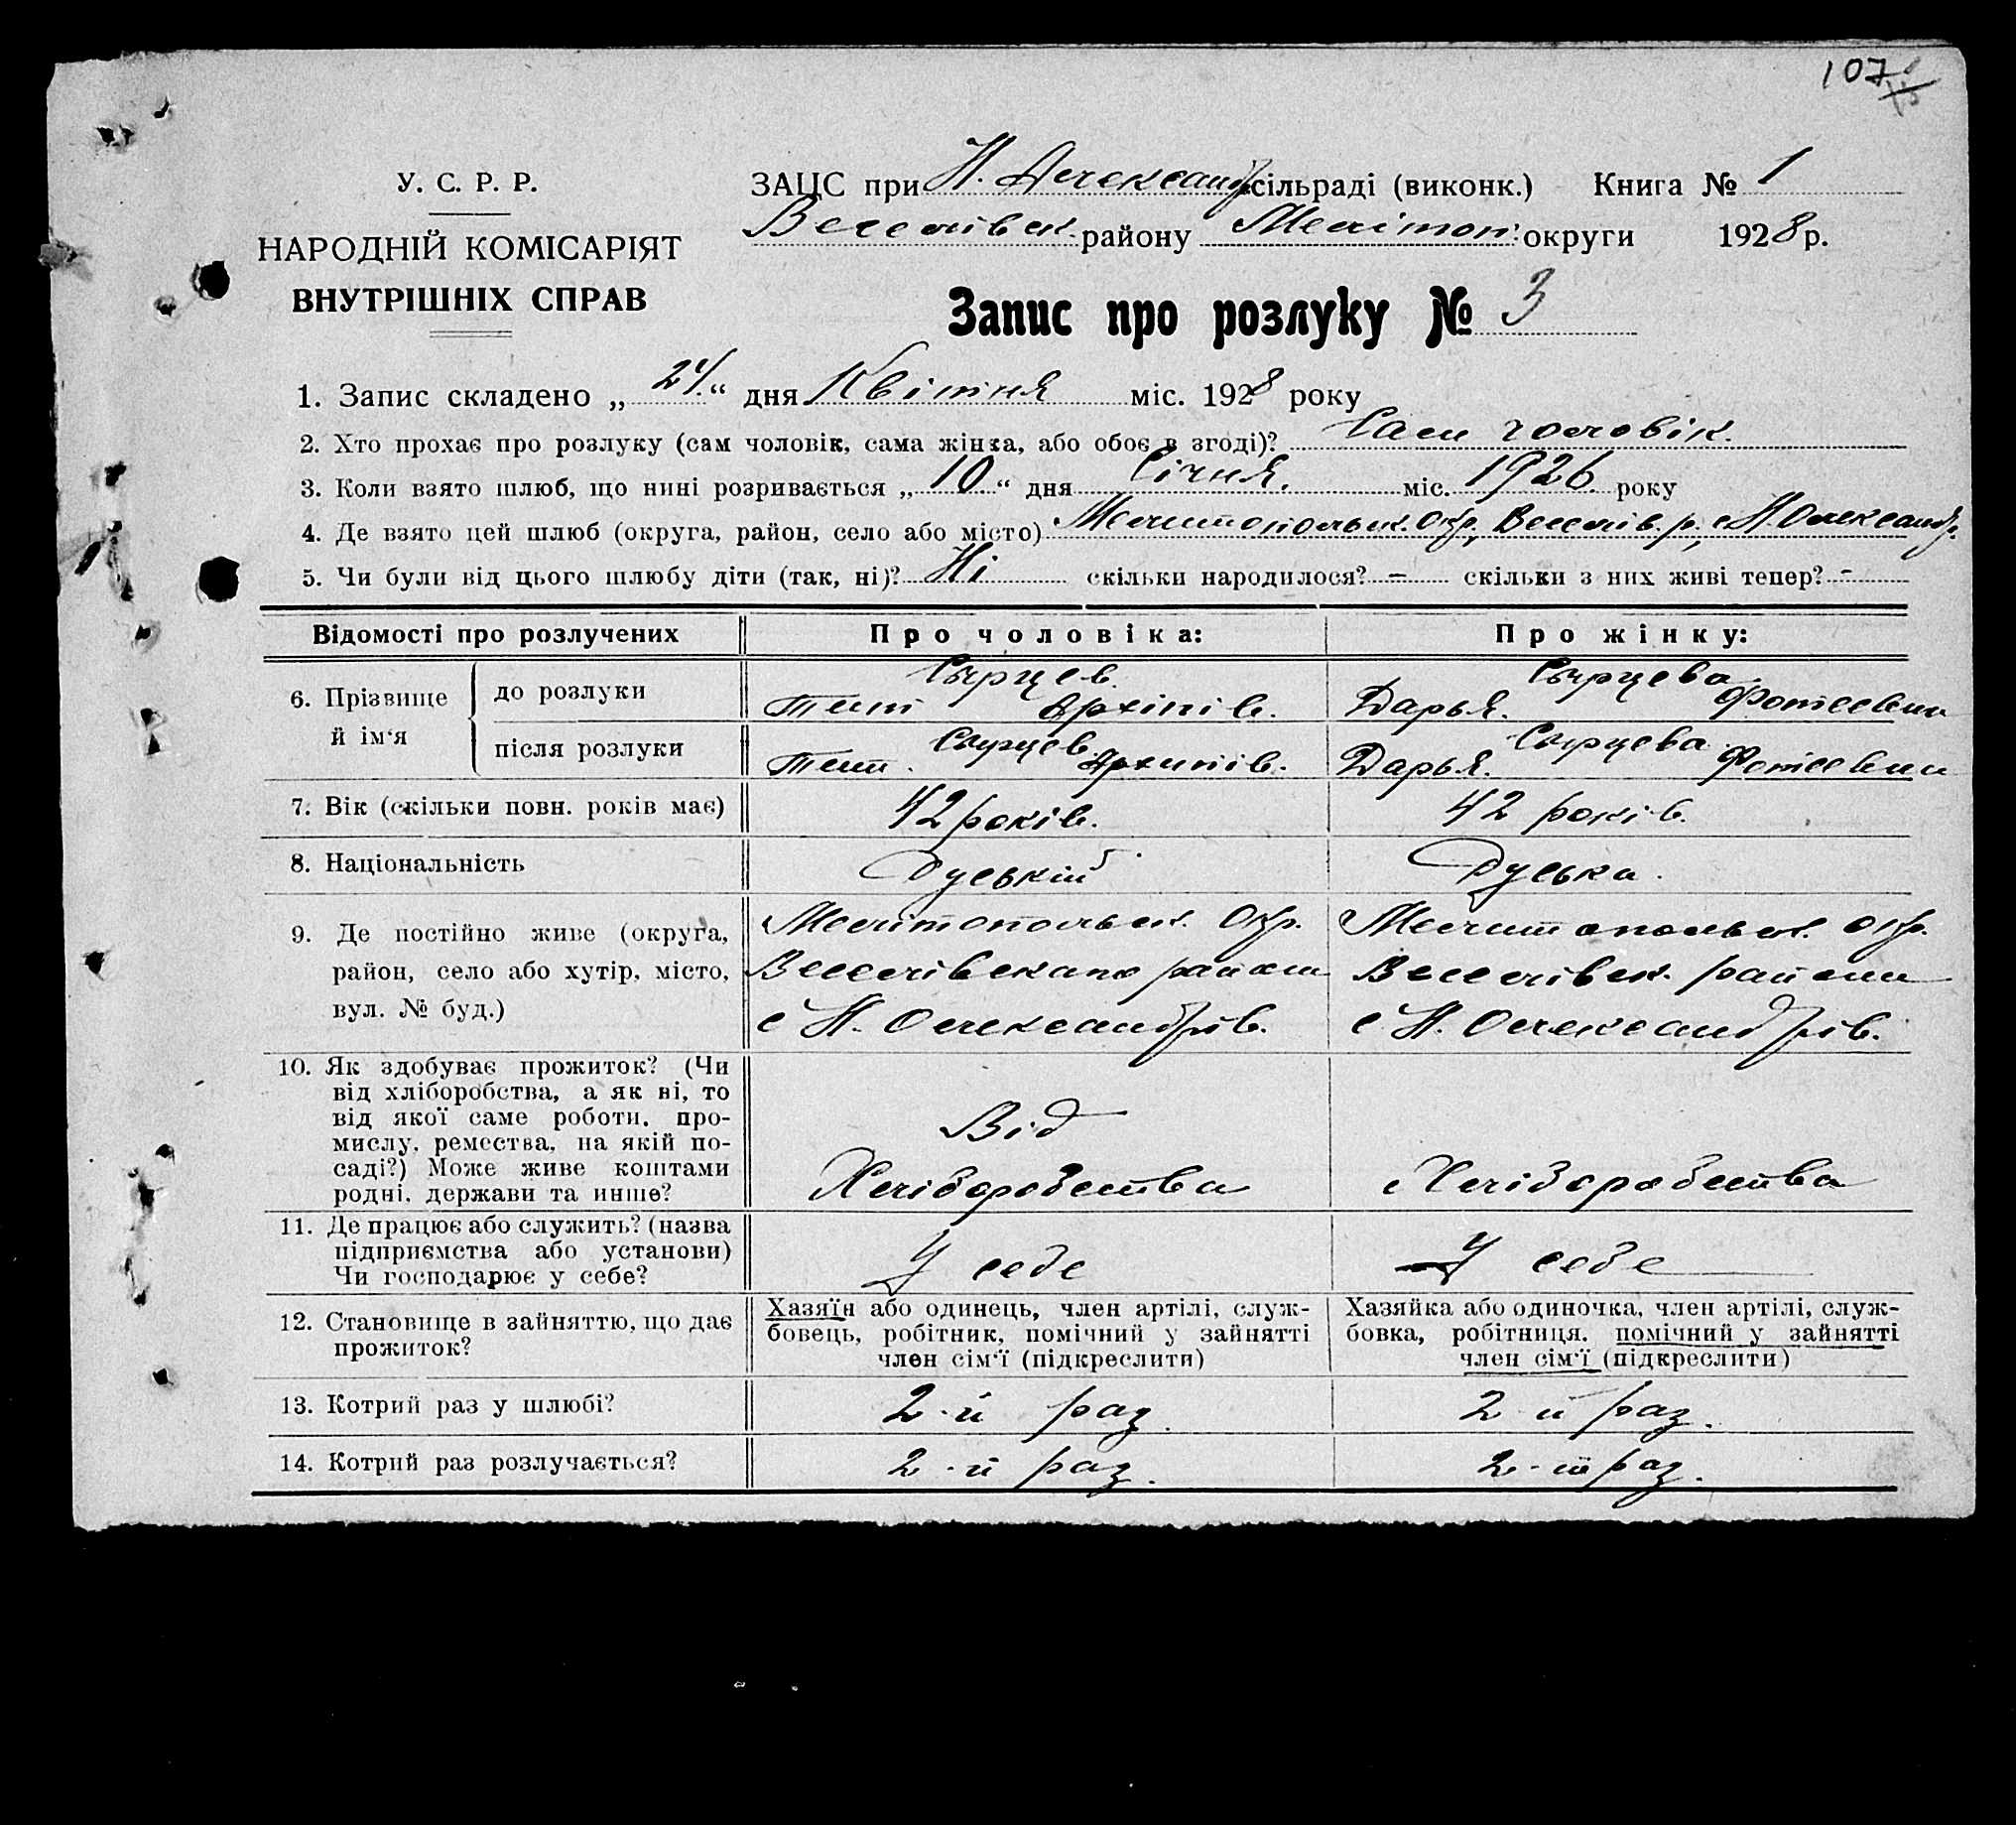 107
У. С. Р. Р.
НАРОДНІЙ КОМІСАРІЯТ
ВНУТРІШНІХ СПРАВ
ЗАЦС при Н. Олександ. сільраді (виконк.) Книга № 1
Веселівськ. району Мелітоп. округи 1928 р.
Запис про розлуку № 3
1. Запис складено „24“ дня Квітня міс. 1928 року
2. Хто прохає про розлуку (сам чоловік, сама жінка, або обоє в згоді)? Сам чоловік.
3. Коли взято шлюб, що нині розривається „10“ дня Січня. міс. 1926 року
4. Де взято цей шлюб (округа, район, село або місто) Мелитопольск. Окр., Веселів. р., с Н. Олександр.
5. Чи були від цього шлюбу діти (так, ні)? Ні скільки народилося? – скільки з них живі тепер? -
Відомості про розлучених
Про чоловіка:
Про жінку:
6. Прізвище й ім‘я
до розлуки
Сырцев.
Тит Архіпів.
Сырцева
Дарья. Фотеевна
після розлуки
Сырцев.
Тит. Архипів.
Сырцева
Дарья. Фотеевна
7. Вік (скільки повн. років має)
42 років.
42 років.
8. Національність
Руській
Руська.
9. Де постійно живе (округа,
район, село або хутір, місто,
вул. № буд.)
Мелітопольск. Окр.
Веселівскапо район
с Н. Олександрів.
Мелитопольск. окр.
Веселівск. район
с Н. Олександрів.
10. Як здобуває прожиток? (Чи
від хліборобства, а як ні, то
від якої саме роботи, про-
мислу, ремества, на якій по-
саді?) Може живе коштами
родні, держави та инше?
Від
Хліборобства
Хліборобства
11. Де працює або служить? (назва
підприємства або установи)
Чи господарює у себе?
У себе
У себе
12. Становище в зайняттю, що дає
прожиток?
Хазяїн або одинець, член артілі, служ-
бовець, робітник, помічний у зайнятті
член сім‘ї (підкреслити)
Хазяйка або одиночка, член артілі, служ-
бовка, робітниця, помічний у зайнятті
член сім‘ї (підкреслити)
13. Котрий раз у шлюбі?
2-й раз.
2-й раз.
14. Котрий раз розлучається?
2-й раз.
2-й раз.